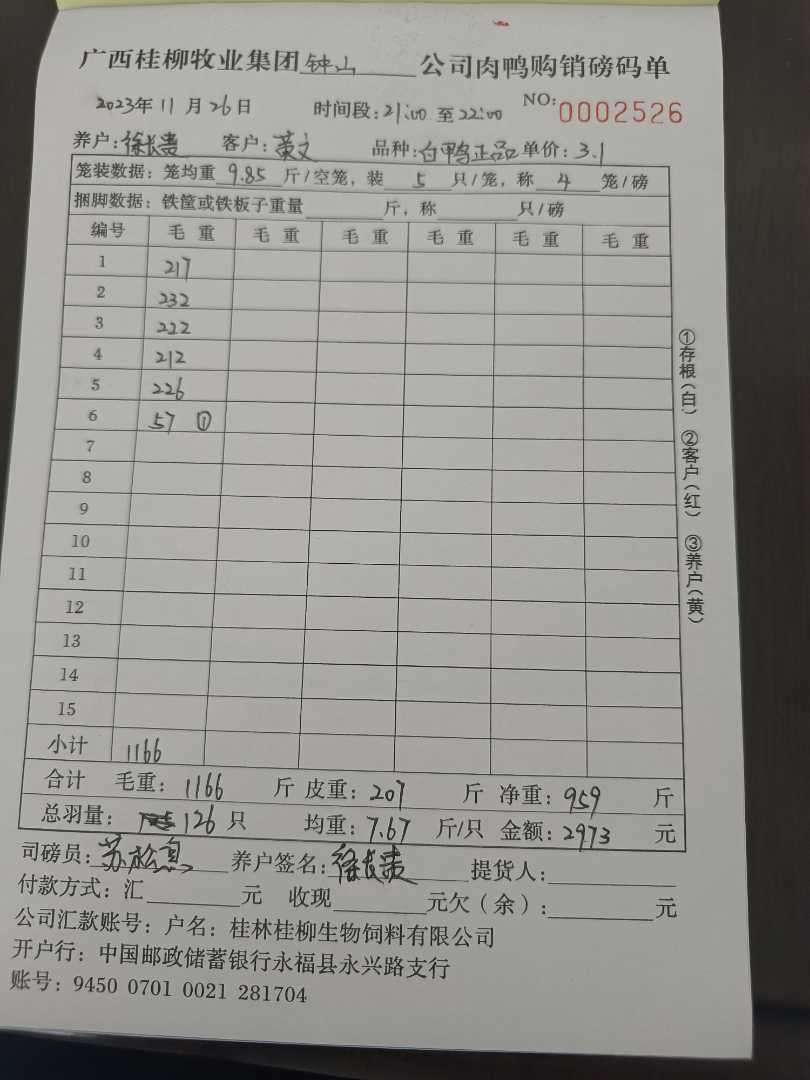 广西桂柳牧业集团钟山公司肉鸭购销磅码单
2023年11月26日 时间段:21:00至22:00 NO:0002526
养户:徐长贵 客户:英文 品种:白鸭正品 单价:3.1
笼装数据:笼均重9.85斤/空笼,装5只/笼,称4笼/磅
捆脚数据:铁筐或铁板子重量 斤,称 只/磅
编号 毛重 毛重 毛重 毛重 毛重 毛重
1 217
2 232
3 222
4 212
5 226
6 57 ①
7
8
9
10
11
12
13
14
15
小计 1166
合计 毛重:1166斤 皮重:207斤 净重:959斤
总羽量:126只 均重:7.67斤/只 金额:2973元
司磅员:苏松 养户签名:徐长贵 提货人:
付款方式:汇 元 收现 元欠(余): 元
公司汇款账号:户名:桂林桂柳生物饲料有限公司
开户行:中国邮政储蓄银行永福县永兴路支行
账号:9450 0701 0021 281704
①存根(白) ②客户(红) ③养户(黄)